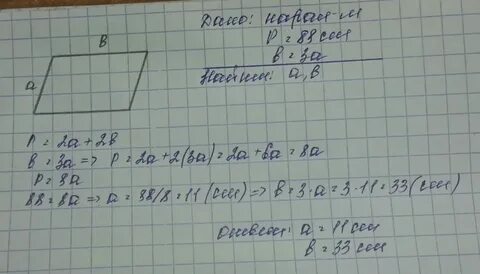 Дано: парал-м
P = 88 см
b = 3a
Найти: a, b
b
a
P = 2a + 2b
b = 3a => P = 2a + 2(3a) = 2a + 6a = 8a
P = 8a
88 = 8a => a = 88/8 = 11 (см) => b = 3·a = 3·11 = 33 (см)
Ответ: a = 11 см
b = 33 см